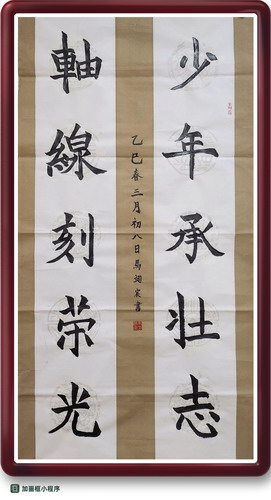 少年承壮志
軸線刻荣光
乙巳春三月初八日馬翊宸書
加画框小程序